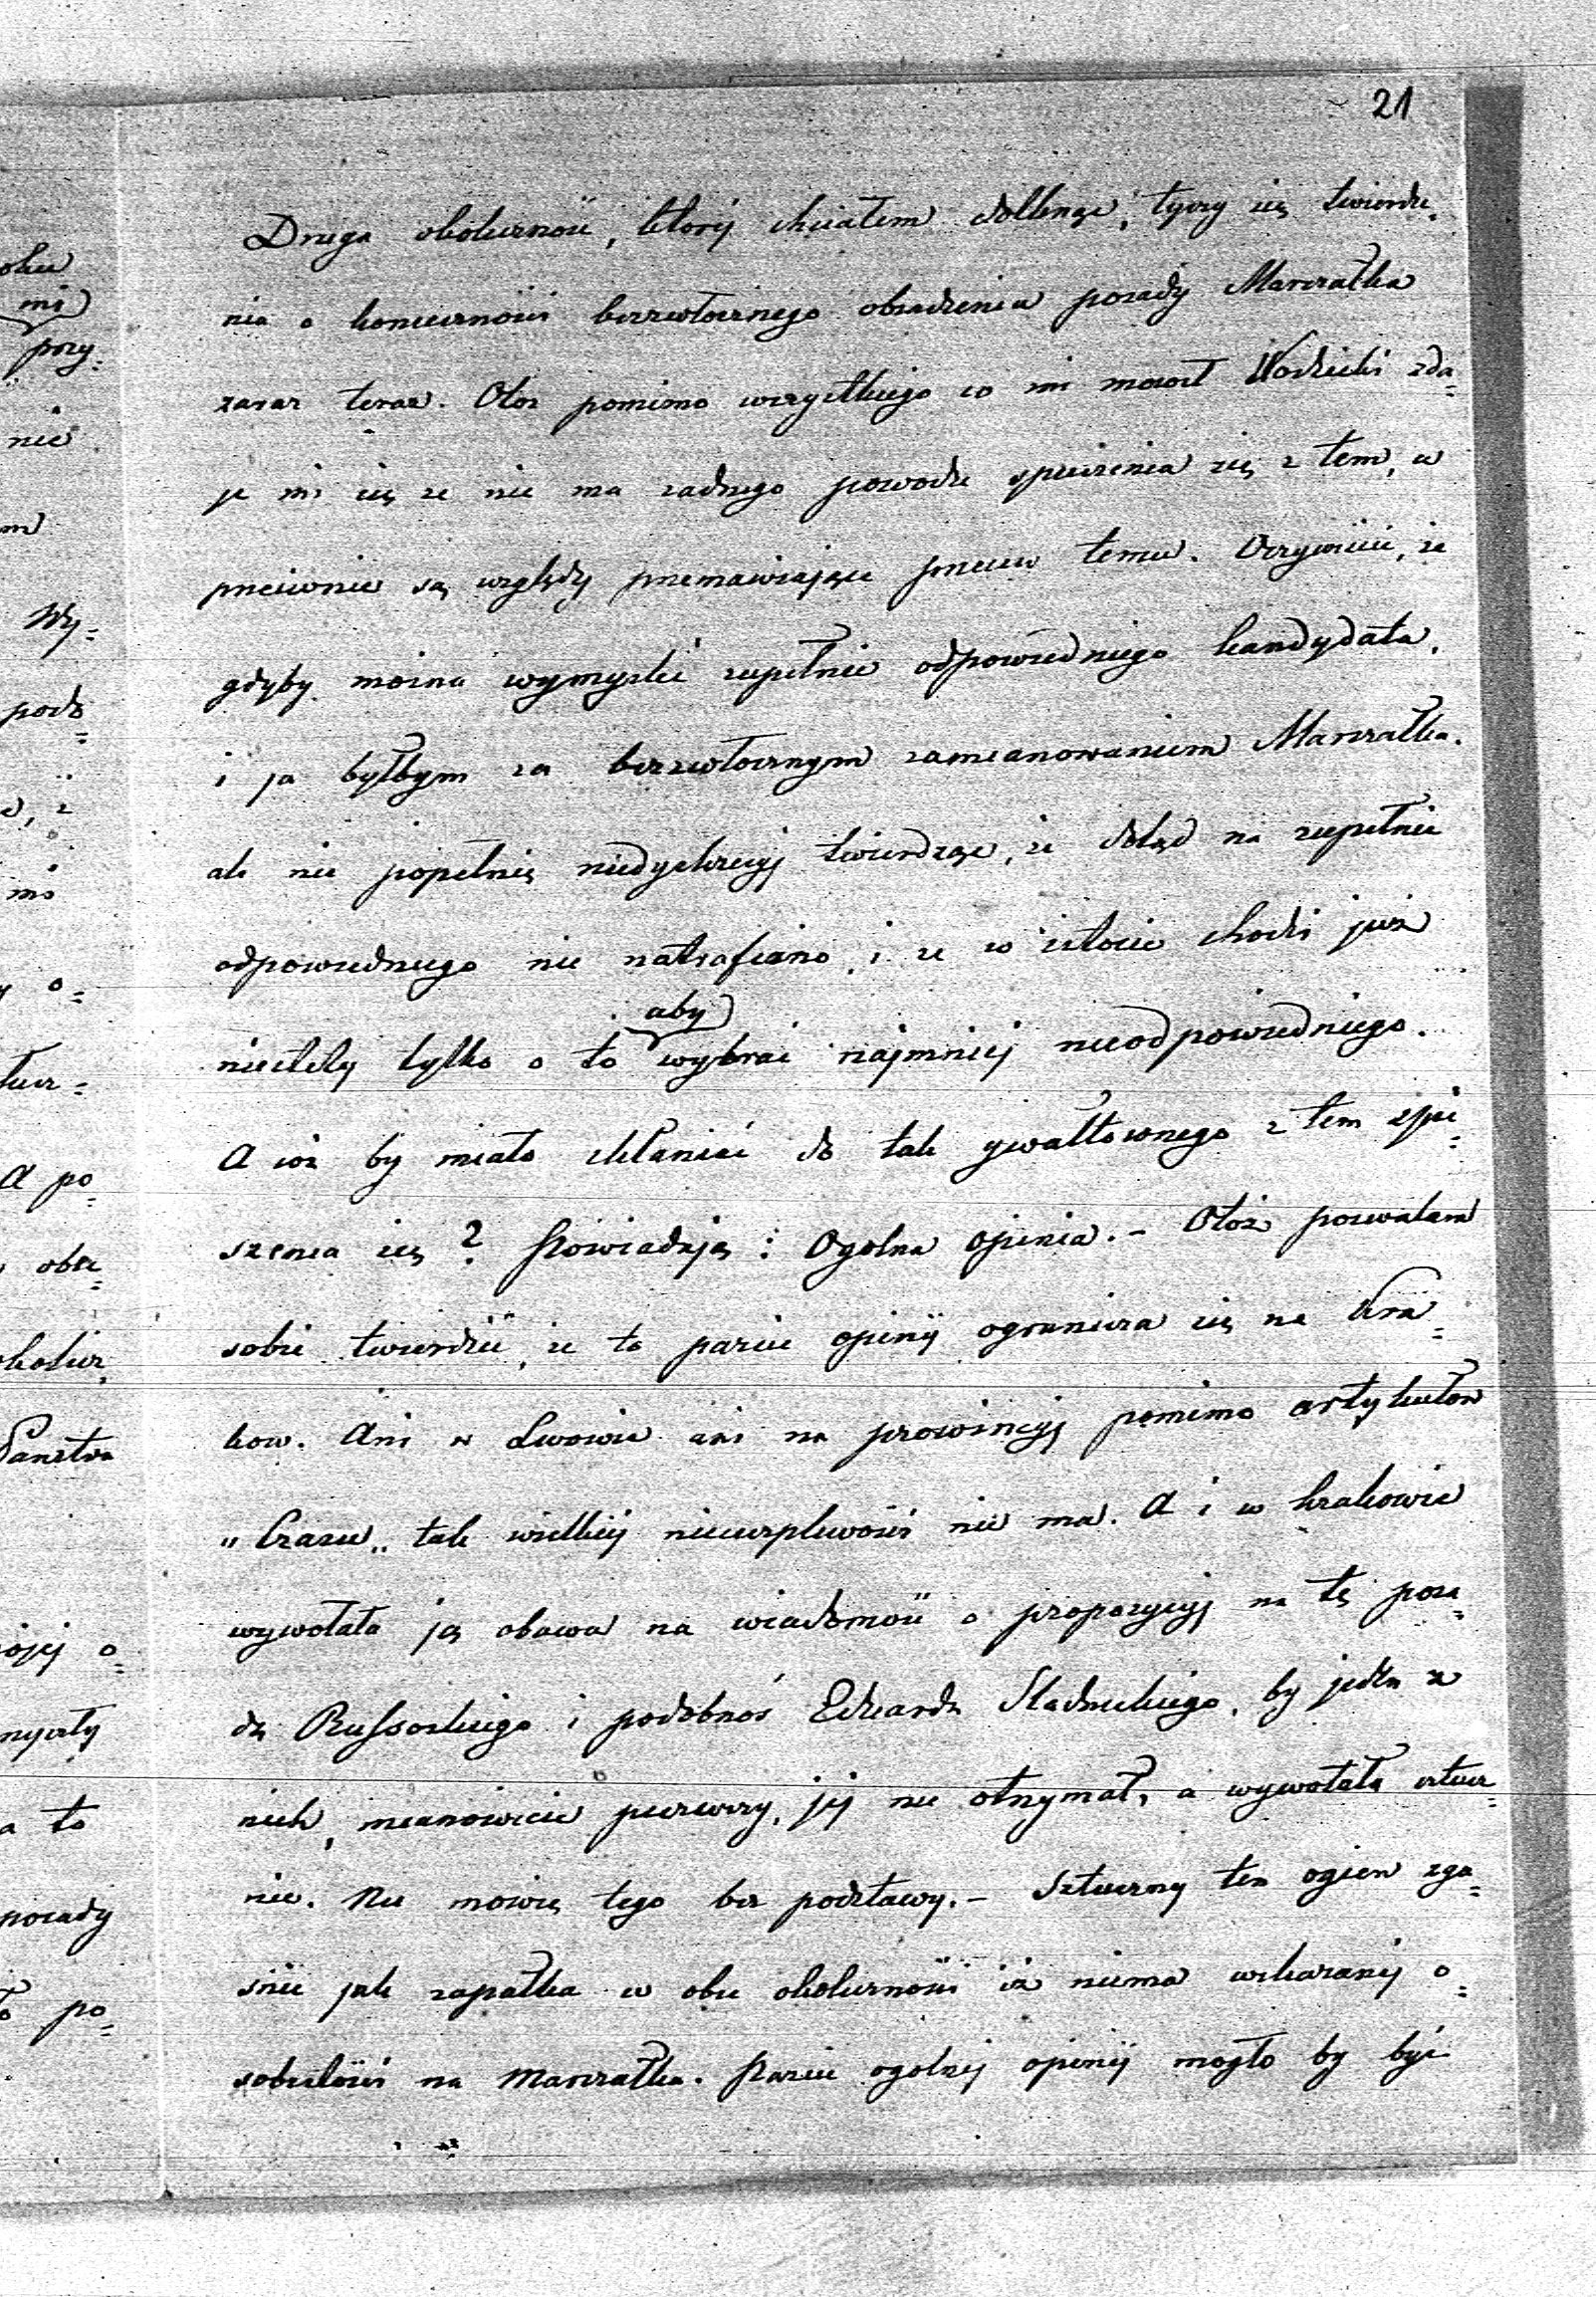 21
Druga okoliczność, której chciałem dotknąć, tyczy się twierdze-
nia o konieczności bezzwłocznego obsadzenia posady Marszałka
zaraz teraz. Otoz pomimo wszystkiego co mi mówił Wodzicki zda=
je mi się ze nie ma zadnego powodu spieszenia się z tem, a
przeciwnie są względy przemawiające przeciw temu. Oczywiście, że
gdyby można wymyslić zupełnie odpowiedniego kandydata,
i ja byłbym za bezzwłocznym zamianowaniem Marszałka.
ale nie popełnię niedyskrecyj twierdząc, że dotąd na zupełnie
odpowiedniego nie natrafiano, i ze w istocie chodzi już
niestety tylko o to aby wybrać najmniej nieodpowiedniego.
A cóż by miało skłaniać do tak gwałtownego z tem spie=
szenia się? Powiadają: Ogolna opinia. – Otóż pozwalam
sobie twierdzić, ze to parcie opinij ogranicza się na Kra=
kow. Ani w Lwowie ani na prowincyj pomimo artykułow
„Czasu„ tak wielkiej niecierpliwości nie ma. A i w Krakowie
wywołała ją obawa na wiadomość o propozycyj na tę posa=
dę Russockiego i podobnoś Edwarda Stadnickiego, by jeden z
nich, mianowicie pierwszy, jej nie otrzymał, a wywołała sztucz=
nie. Nie mowię tego bez podstawy. – Sztuczny ten ogien zga=
śnie jak zapałka w obec okoliczności iż niema wskazanej o=
sobistości na Marszałka. Parcie ogolnej opinij mogło by być